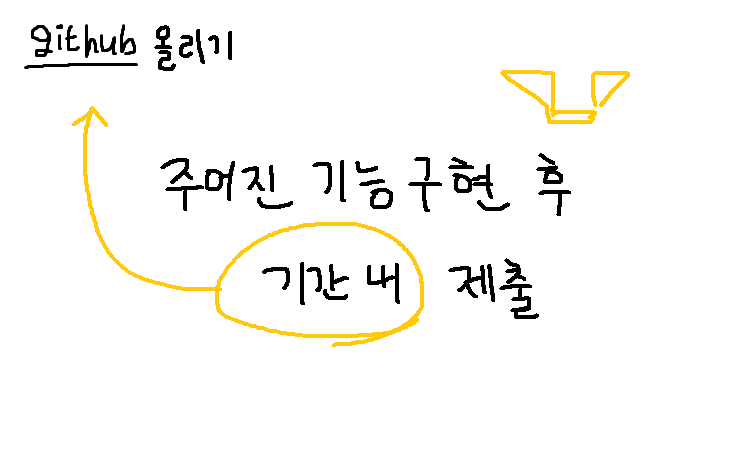 github 올리기
주어진 기능 구현 후
기간 내 제출